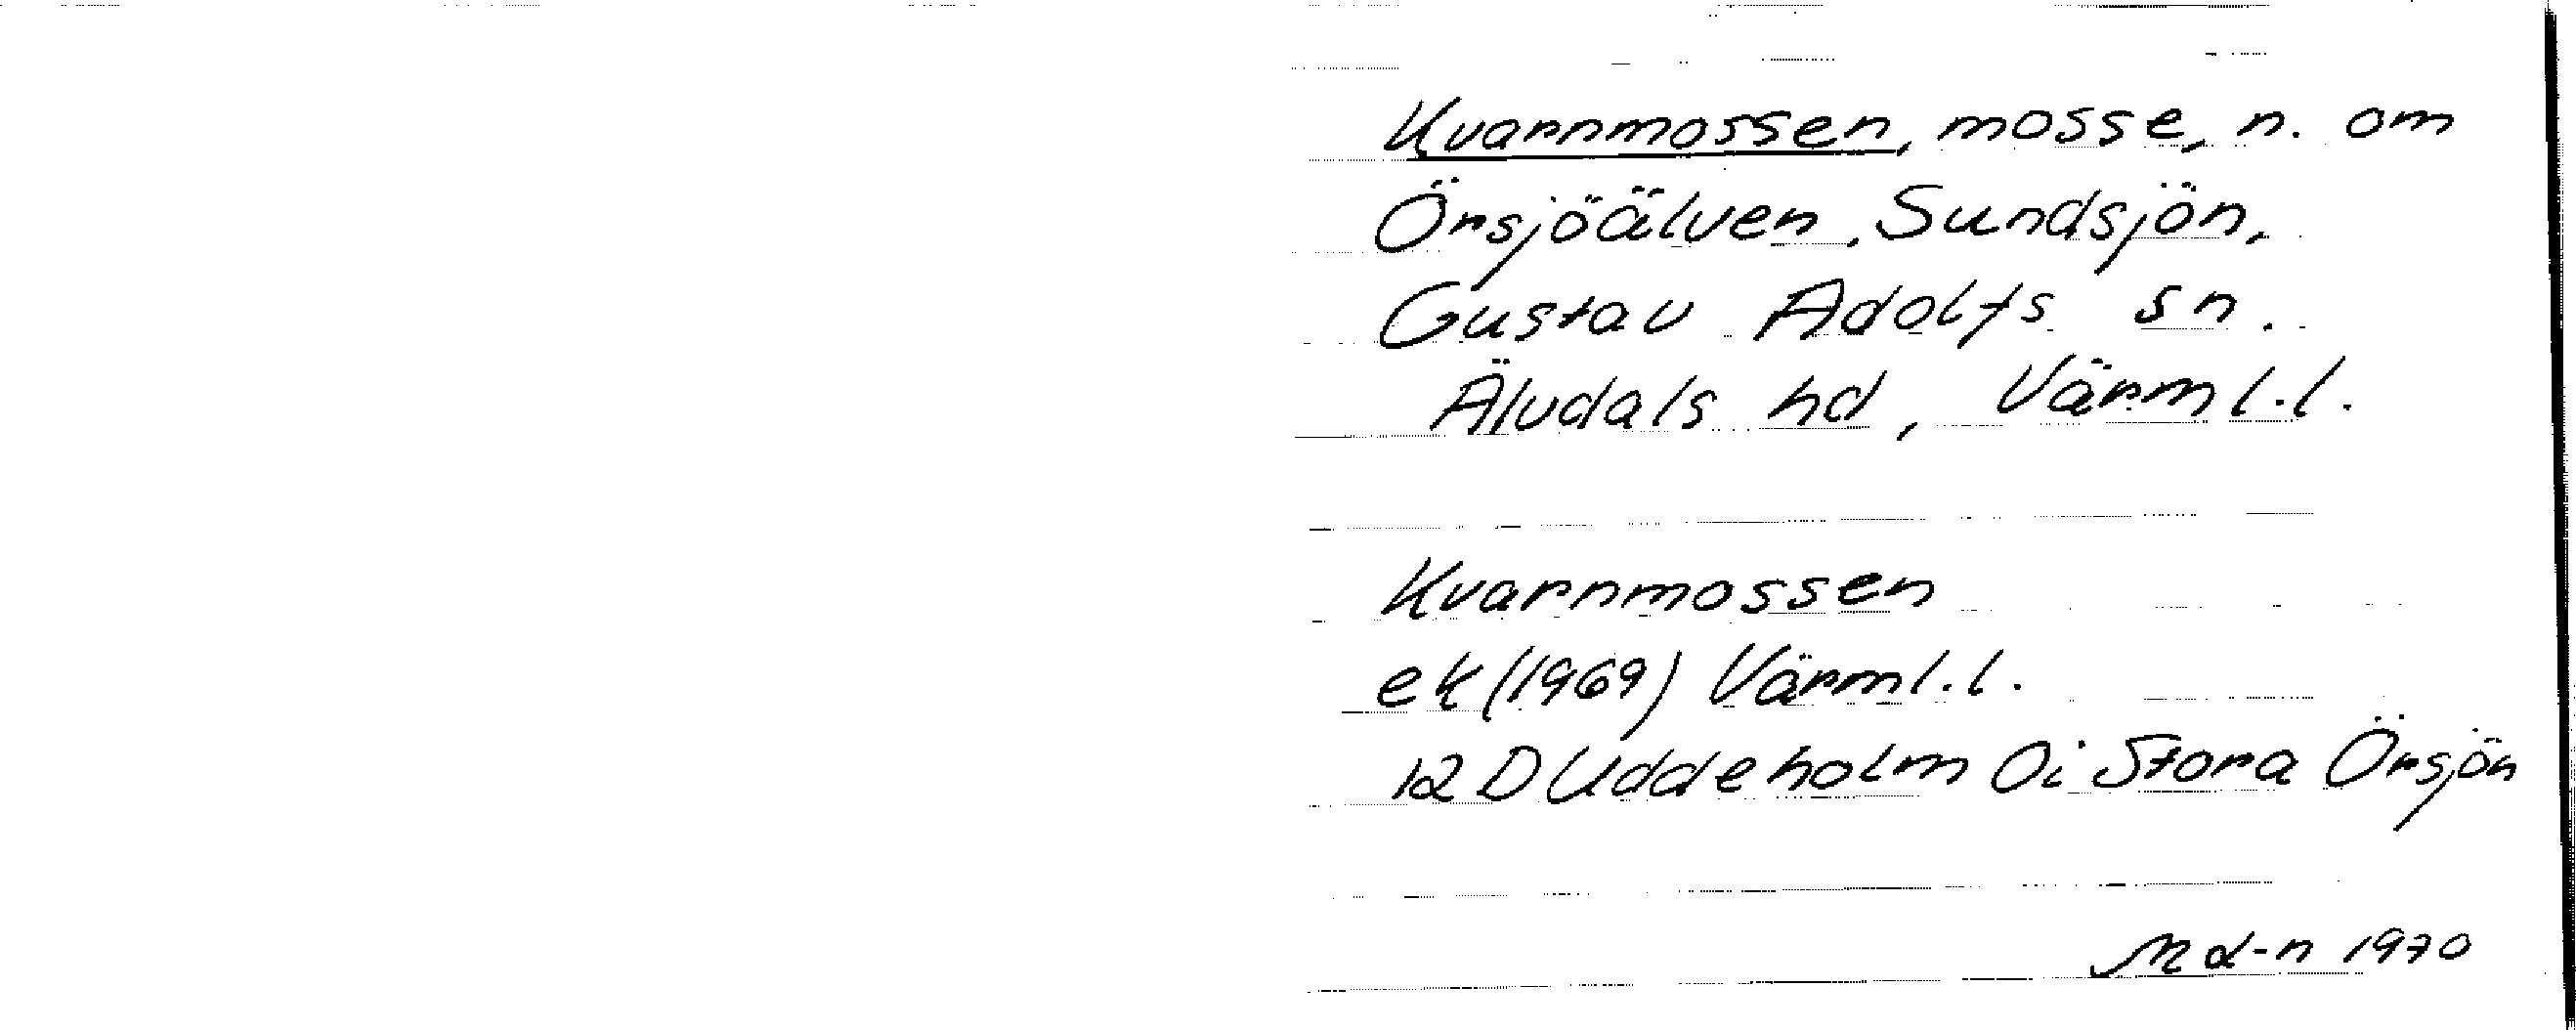 Kvarnmossen, mosse, n. om
Örsjöälven, Sundsjön,
Gustav Adolfs sn.
Älvdals hd, Värml.l.
Kvarnmossen
ek (1969) Värml.l.
12 D Uddeholm 0i Stora Örsjön
Md-n 1970